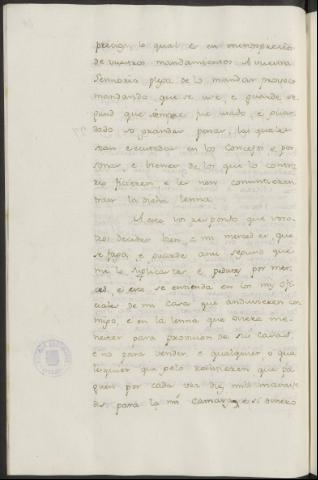 precios, lo qual es en menosprecio
de vuestros mandamientos. A vuestra
Sennoria plega de lo mandar proveer
mandando que se use, e guarde se
gund que siempre fue usado, e guar
dado so grandes penas, las quales
sean executadas en los Concejos e per
sonas, e bienes de los que lo contra
rio ficieren, e les non consintieren
traer la dicha lenna.
A esto vos respondo que voso
tros decides bien, e mi merced es que
se faga, e guarde ansi segund que
me lo suplicastes, e pedistes por mer
ced, e esto se entienda en los mis ofi
ciales de mi casa que andudieren con
migo, e en la lenna que ovieren me
nester para provision de sus casas,
e no para vender, e qualquier o qua
lesquier que pelo rescivieren que pa
guen por cada vez diez mill marave
dis para la mi Camara, e si ovieren